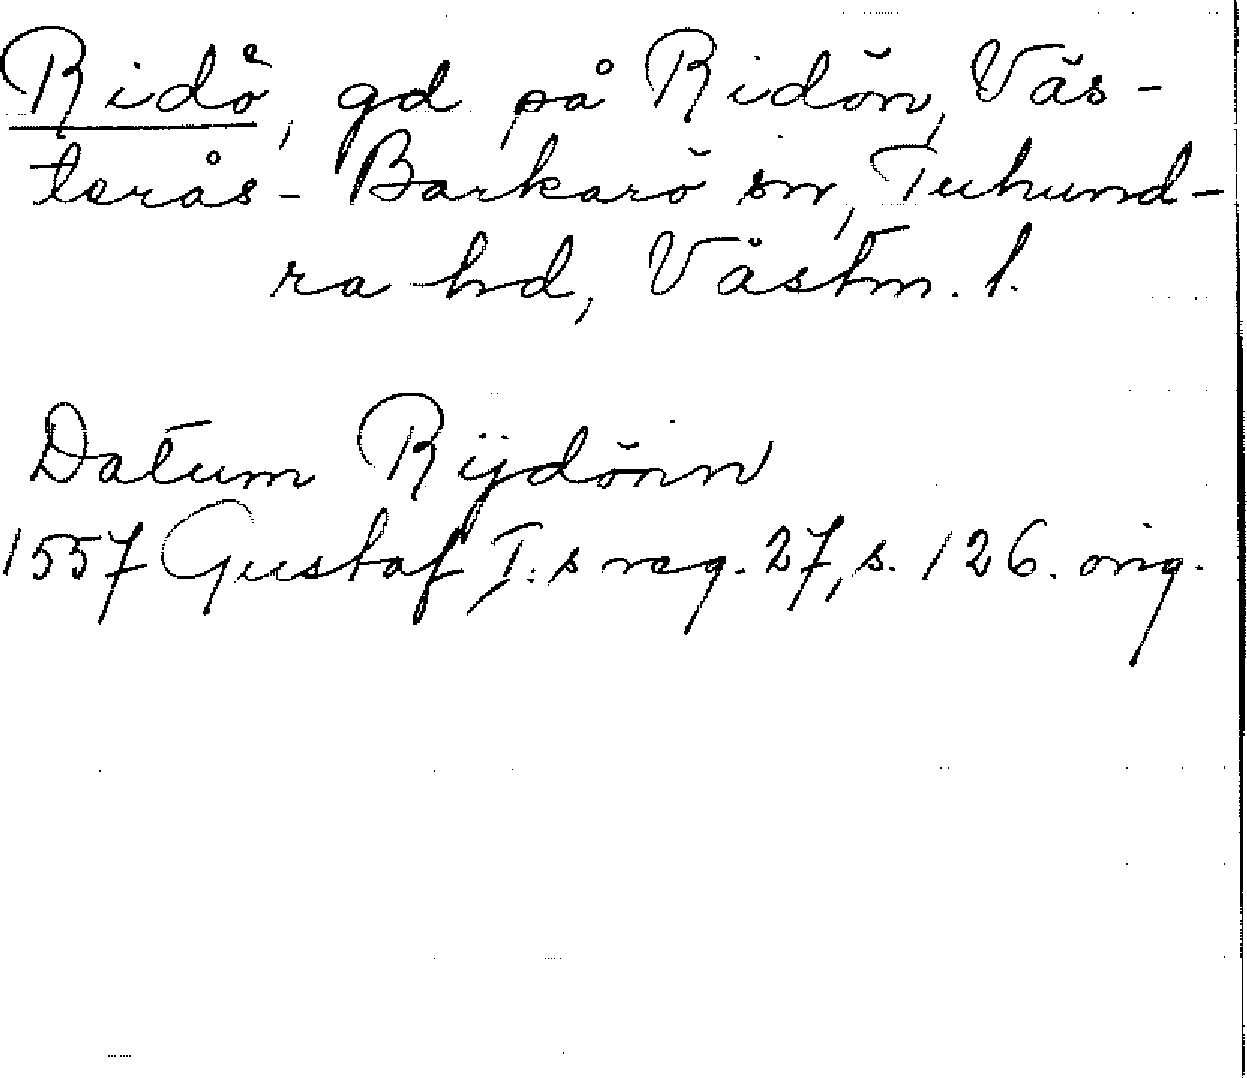 Ridö, gd på Ridön, Väs-
terås-Barkarö sn, Tuhund-
ra hd, Västm. l.
Datum Rijdönn
1557 Gustaf I:s reg. 27, s. 126. orig.